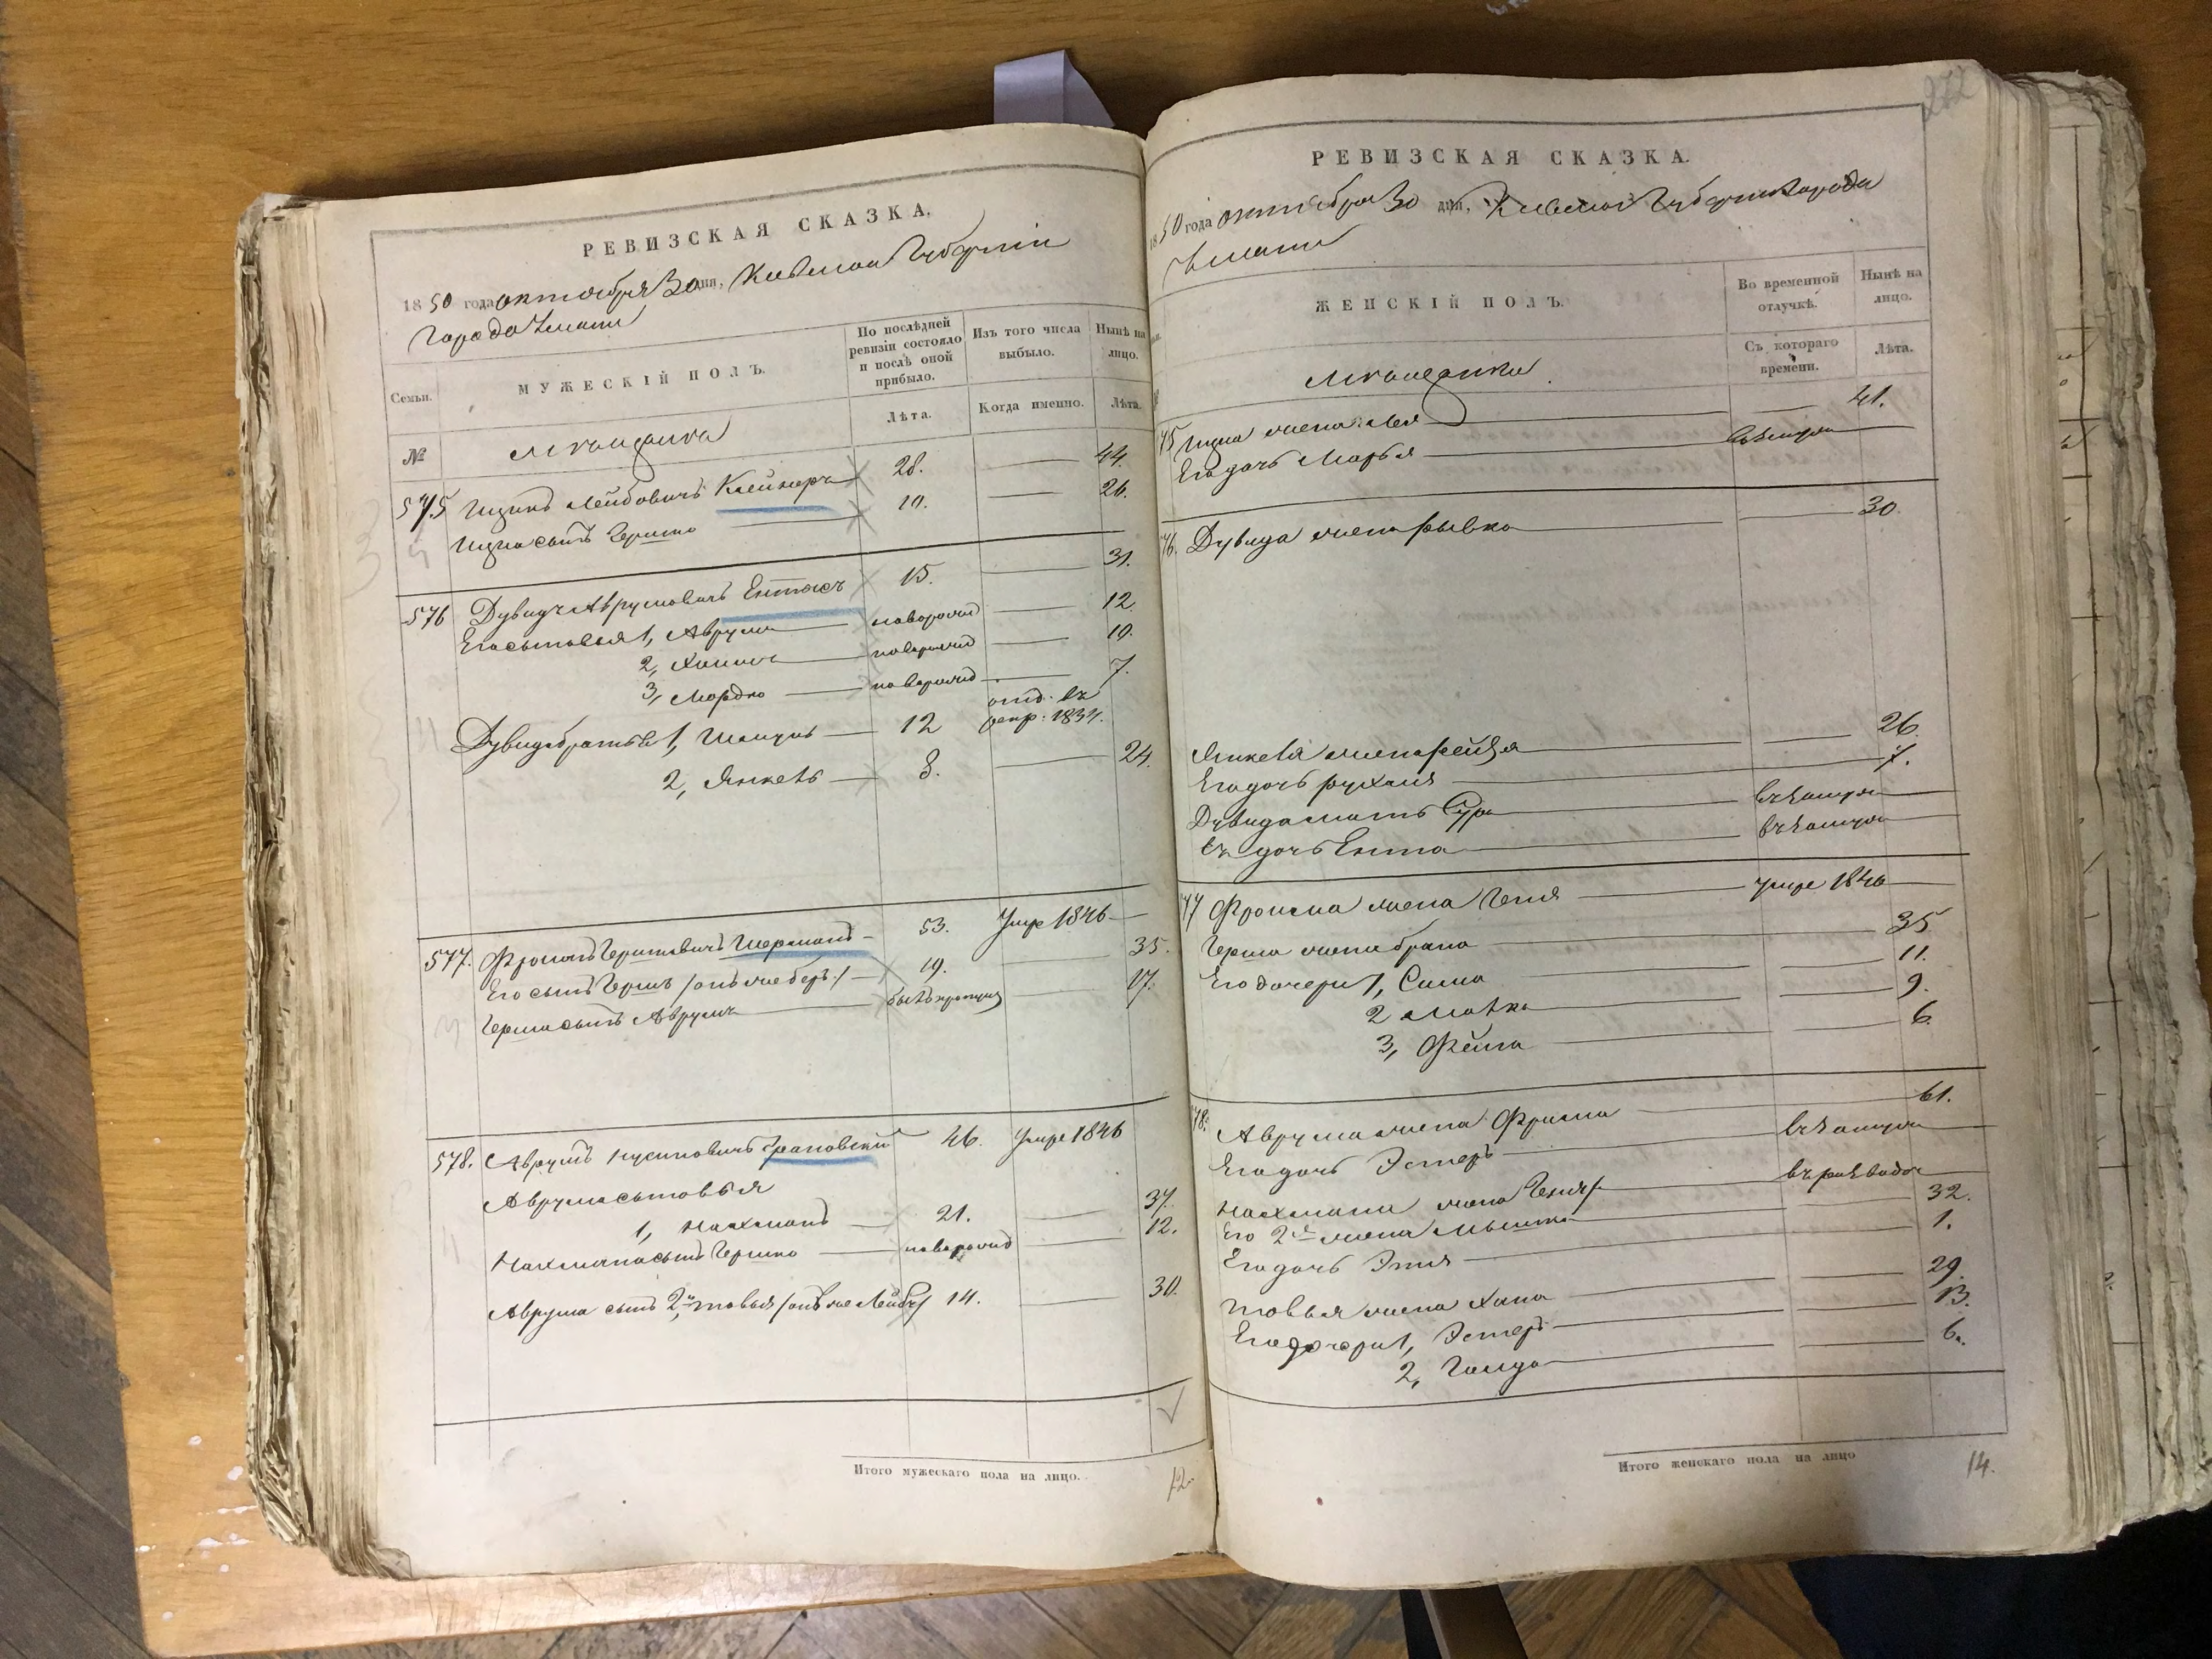 РЕВИЗСКАЯ СКАЗКА.
1850 года октября 30 дня, Киевской Губернiи
Города Умани
Семьи. МУЖЕСКIЙ ПОЛЪ. По послѣдней ревизiи состояло и послѣ оной прибыло. Изъ того числа выбыло. Нынѣ на лицо.
№ Лѣта. Когда именно. Лѣта.
575 Ицикъ Лейбовичъ Клейнеръ 28. 44.
Ицка сынъ Гершко 10. 26.
576 Дувидъ Аврумовичъ Ентисъ 15. 31.
Его сыновья 1, Аврумъ новорожд 12.
2, новорожд 10.
3, Мордко новорожд 7.
Дувида братья 1, 12 отд. въ рекр. 1834.
2, Янкель 8. 24.
577. Фроимъ Гершковичъ Шерманъ 53. Умре 1846
Его сынъ Гершъ /онъ же Беръ/ 19. 35.
Герша сынъ Аврумъ 17.
578. Аврумъ Нусиновичъ Грановскiй 46. Умре 1846
Аврума сыновья
1, Нахманъ 21. 37.
Нахмана сынъ Гершко новорожд 12.
Аврума сынъ 2й Товья /онъ же Лейбъ/ 14. 30.
Итого мужескаго пола на лицо. 12.
272
РЕВИЗСКАЯ СКАЗКА.
1850 года октября 30 дня, Киевской Губернiи Города
Умани
ЖЕНСКIЙ ПОЛЪ. Во временной отлучкѣ. Нынѣ на лицо.
Съ котораго времени. Лѣта.
75 Ицка жена Лея 41.
Его дочь Марья въ замуж
76. Дувида жена Рывка 30
Янкеля жена Рейзя 26.
Его дочь Рухля 7.
Дувида мать Сура въ замуж
Ея дочь Ента въ замуж
77 Фроима жена Геня умре 1846
Герша жена Брана 35
Его дочери 1, Сима 11.
2 Малка 9.
3, Фейга 6.
78. Аврума жена Фрима 61.
Его дочь Эстеръ въ замуж
Нахмана жена Геня въ разводе
Его 2я жена 32.
Его дочь Этя 1.
Товья жена Хана 29.
Его дочери 1, Эстеръ 13.
2, Голда 6.
Итого женскаго пола на лицо 14.